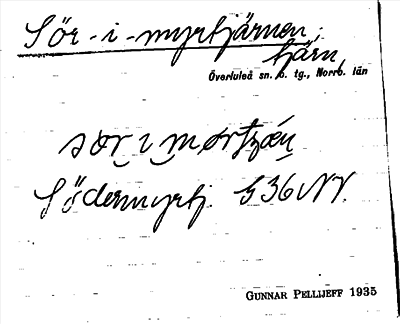 Sör-i-myrtjärnen,
tjärn,
Överluleå sn. o. tg., Norrb. län
Södermyrtj. G36NV.
GUNNAR PELLIJEFF 1935